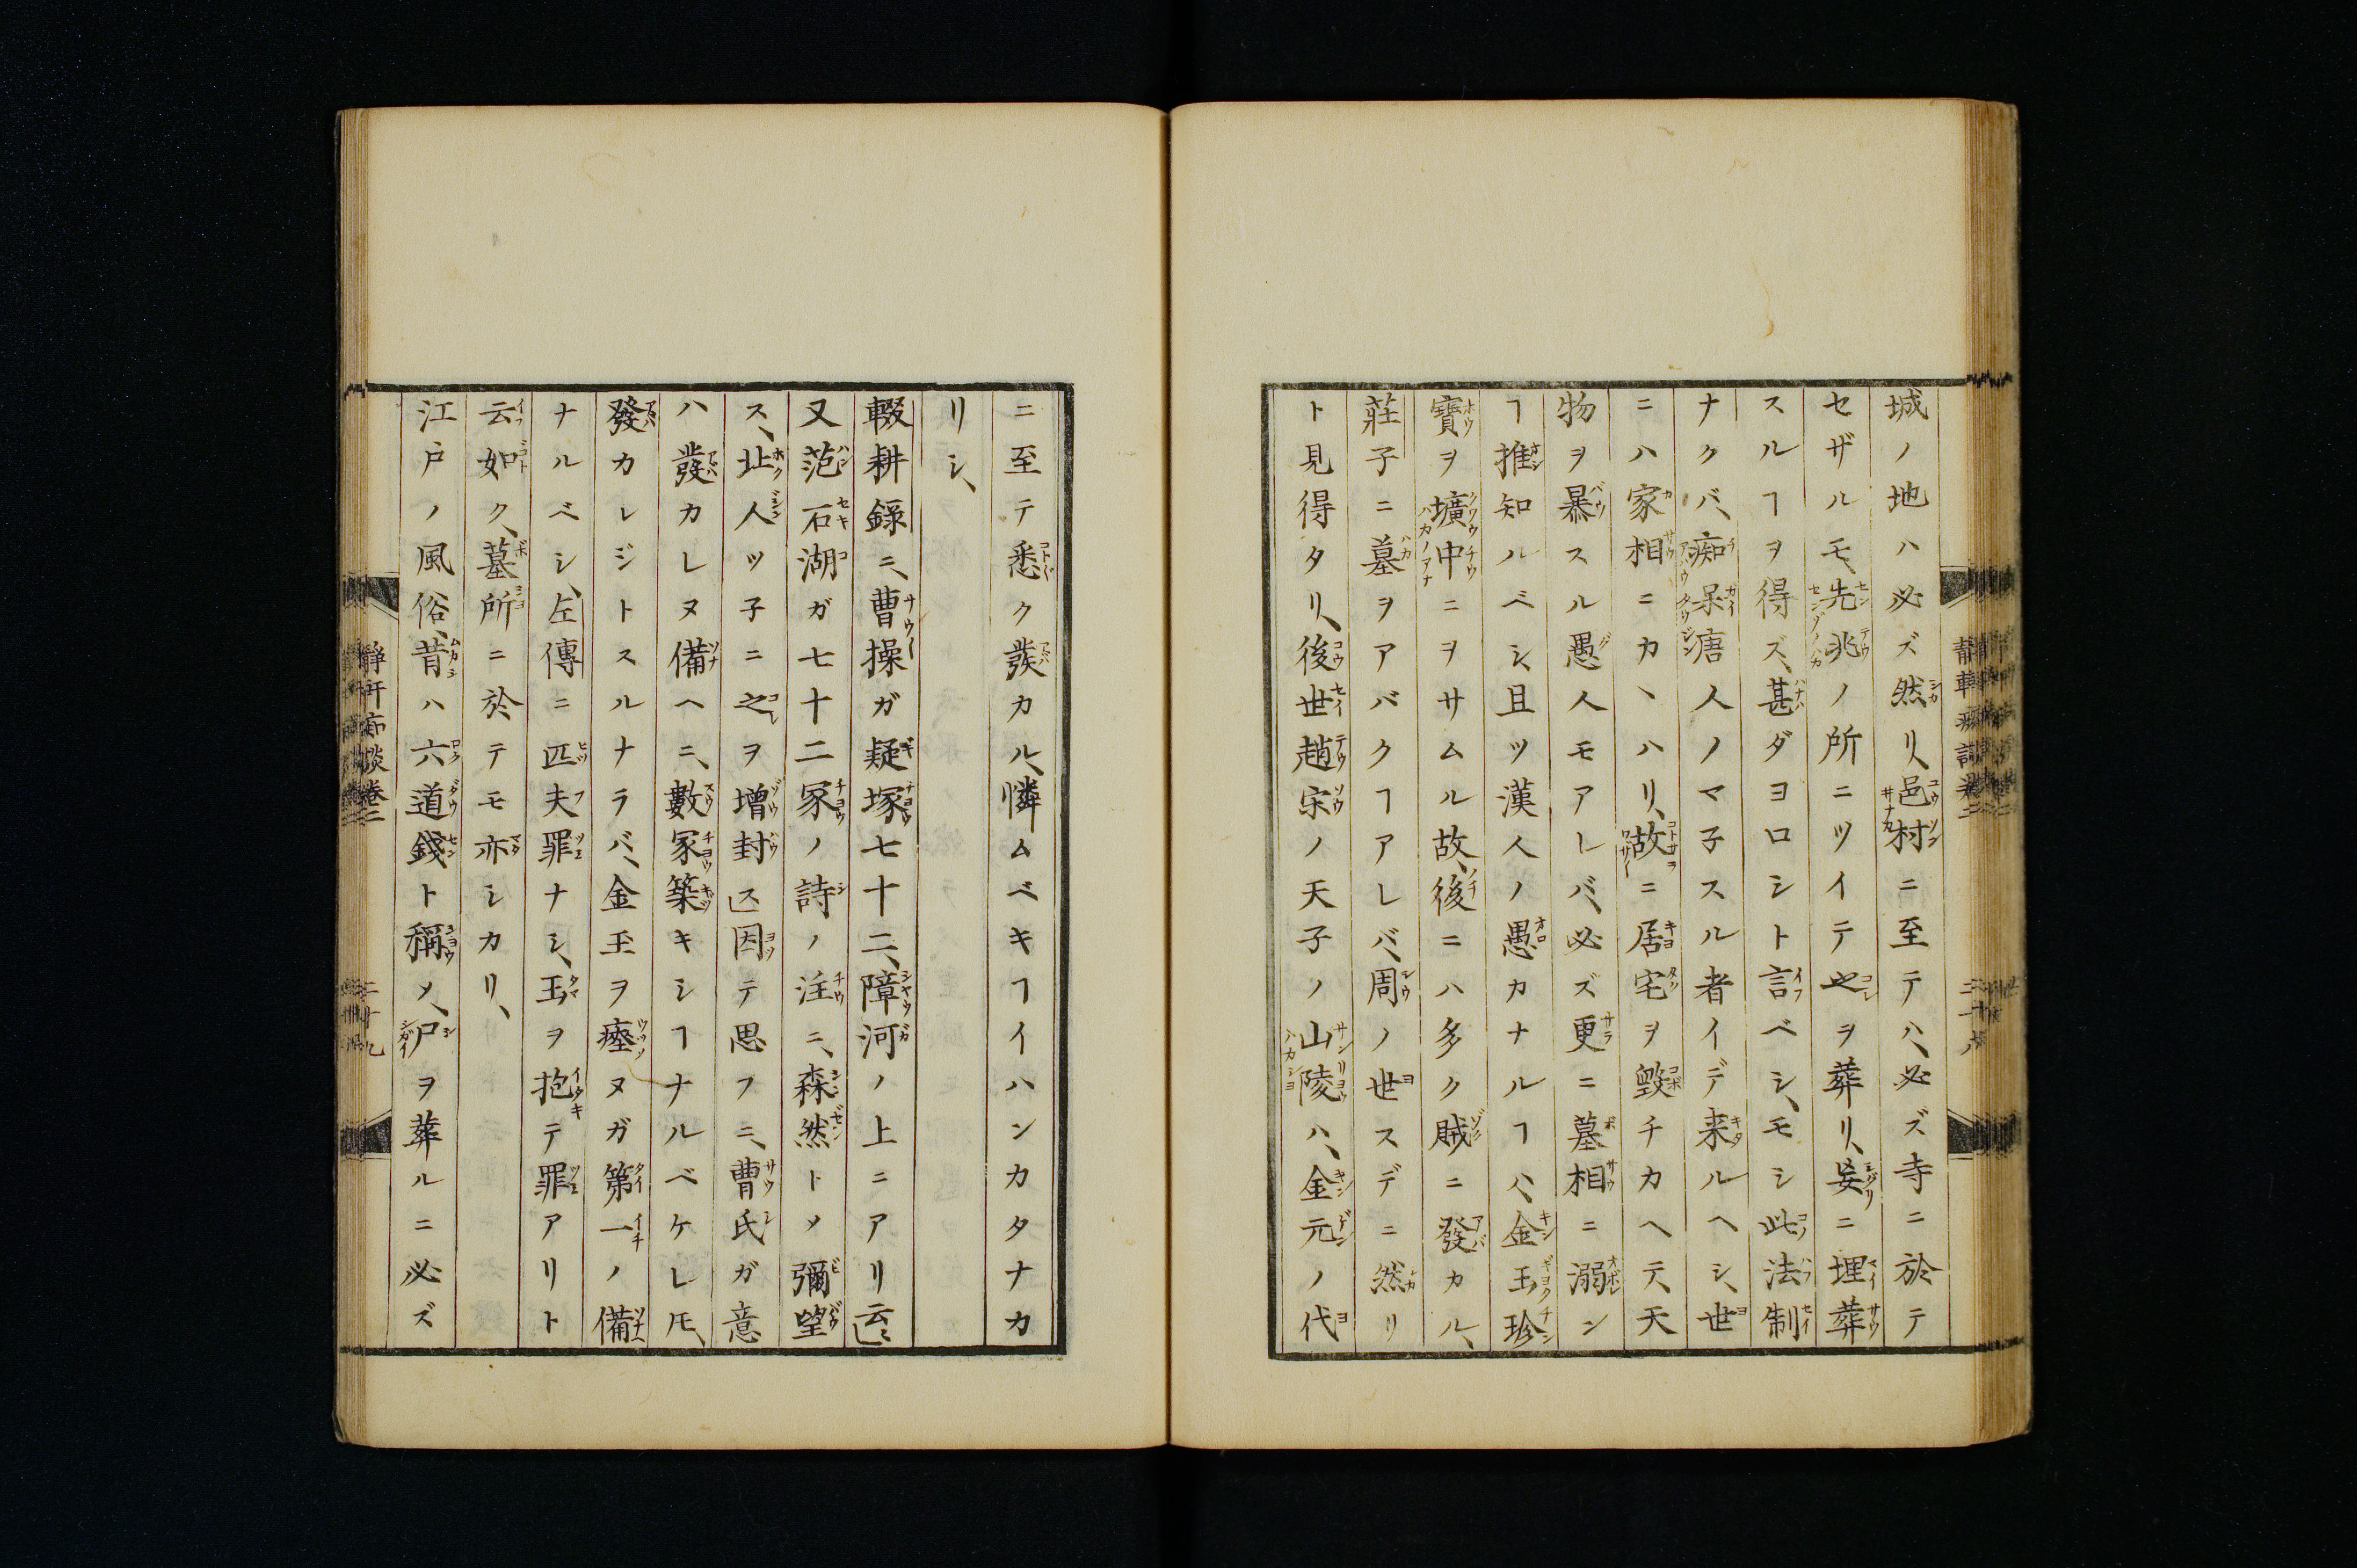 城ノ地ハ必ズ然リ、邑村ニ至テハ、必ズ寺ニ於テ
セザルモ、先兆ノ所ニツイテ之ヲ葬リ、妄ニ埋葬
スルヿヲ得ズ、甚ダヨロシト言ベシ、モシ此法制
ナクバ、痴呆唐人ノマ子スル者イデ来ルヘシ、世
ニハ家相ニカヽハリ、故ニ居宅ヲ毀チカヘテ、天
物ヲ暴スル愚人モアレバ、必ズ更ニ墓相ニ溺ン
ヿ推知ルベシ、且ツ漢人ノ愚カナルヿハ、金玉珍
寶ヲ壙中ニヲサムル故、後ニハ多ク賊ニ發カル、
莊子ニ墓ヲアバクヿアレバ、周ノ世スデニ然リ
ト見得タリ、後世趙宋ノ天子ノ山陵ハ、金元ノ代
ニ至テ悉ク發カル、憐ムベキヿイハンカタナカ
リシ、
輟耕錄ニ、曹操ガ疑塚七十二、障河ノ上ニアリ云〻
又范石湖ガ七十二冢ノ詩ノ注ニ、森然トメ彌望
ス、北人ツ子ニ之ヲ增封ス因テ思フニ、曹氏ガ意
ハ發カレヌ備ヘニ、數冢築キシヿナルベケレ𪜈、
發カレジトスルナラバ、金玉ヲ瘞ヌガ第一ノ備
ナルベシ、左傳ニ匹夫罪ナシ、玉ヲ抱テ罪アリト
云如ク、墓所ニ於テモ亦シカリ、
江戸ノ風俗、昔ハ六道錢ト稱メ、尸ヲ葬ルニ必ズ